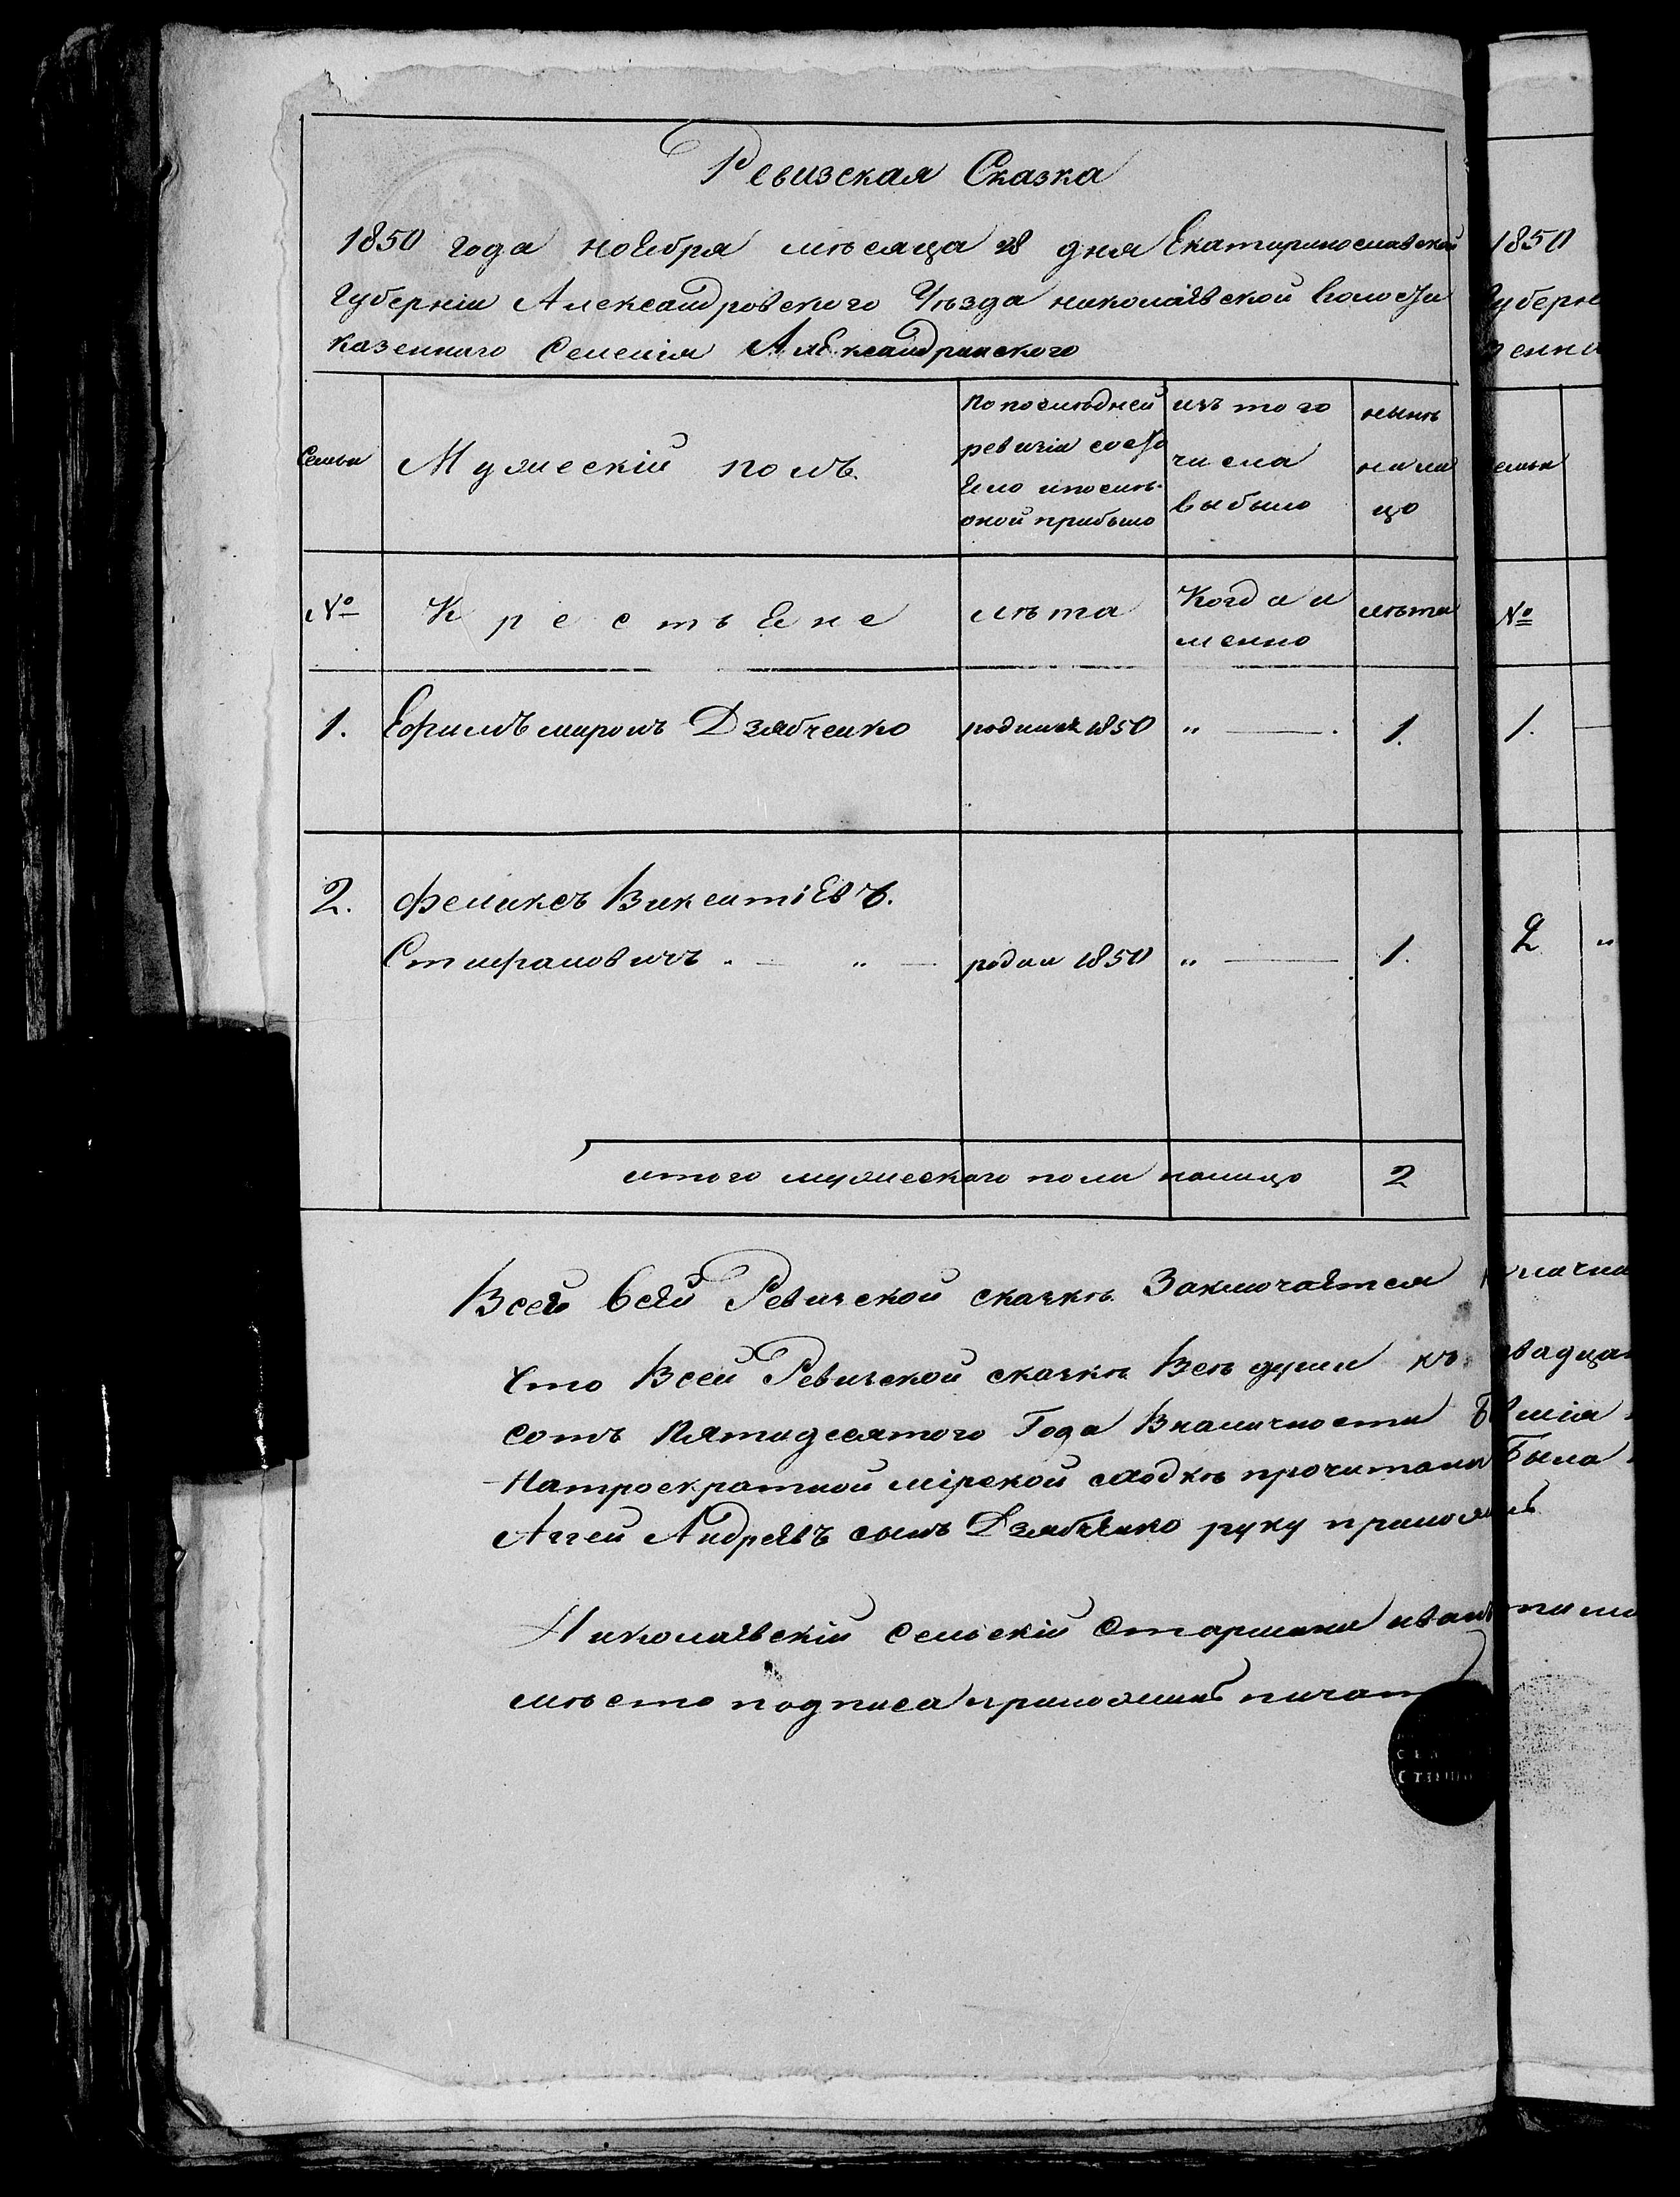 Ревизская Сказка
1850 года ноебря мѣсяца 28 дня Екатеринославской
Губерніи Александровского Уѣзда николаевской волости
казеннаго Селенія Александринского
Семьи
Мужескій полъ
по последней
ревизіи состо
яло и после
оной прибыло
изъ того
числа
выбыло
нынѣ
на ли
цо
№
Крестьяне
лѣта
Когда и
менно
лѣта
1.
Ефимъ миронъ Дзябченко
родился 1850
" — .
1.
2.
Феликсъ Викентіевъ.
Стифановичъ . — " —
родил 1850
" —
1.
итого мужескаго пола налицо
2
Всей Сей Ревизской сказкѣ Заключается
что Всей Ревизской сказкѣ Всѣ души къ
сотъ пятидесятого Года Вналичности
Натроекратной мірской сходкѣ прочитана
Агей Андреевъ сынъ Дзябченко руку приложилъ
Николаевскій Сельскій Старшина иванъ
мѣсто подписа приложилъ пичат
1850
Губерн
зенна
семьи
№
1.
2
"
начна
двадцат
Была